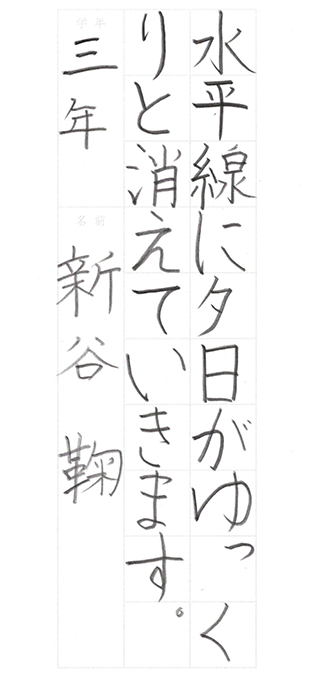 水平線に夕日がゆっく
りと消えていきます。
学年
三年
名前
新谷 鞠